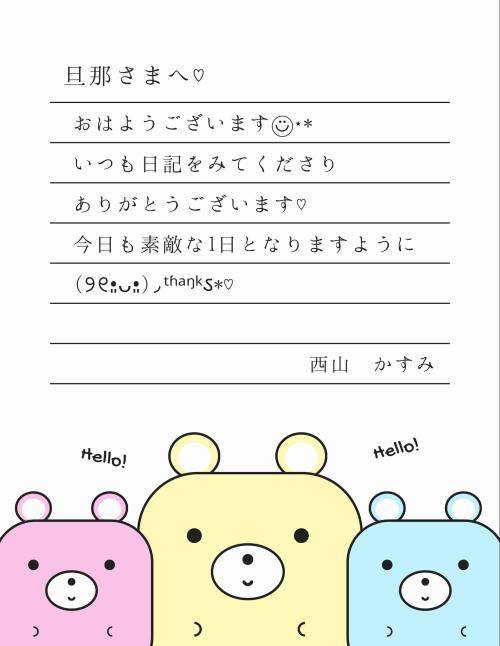 旦那さまへ♡
おはようございます☺⋆*
いつも日記をみてくださり
ありがとうございます♡
今日も素敵な1日となりますように
(୨୧•͈ᴗ•͈)◞ᵗʱᵃᵑᵏઽ*♡
西山　かすみ
Hello!
Hello!